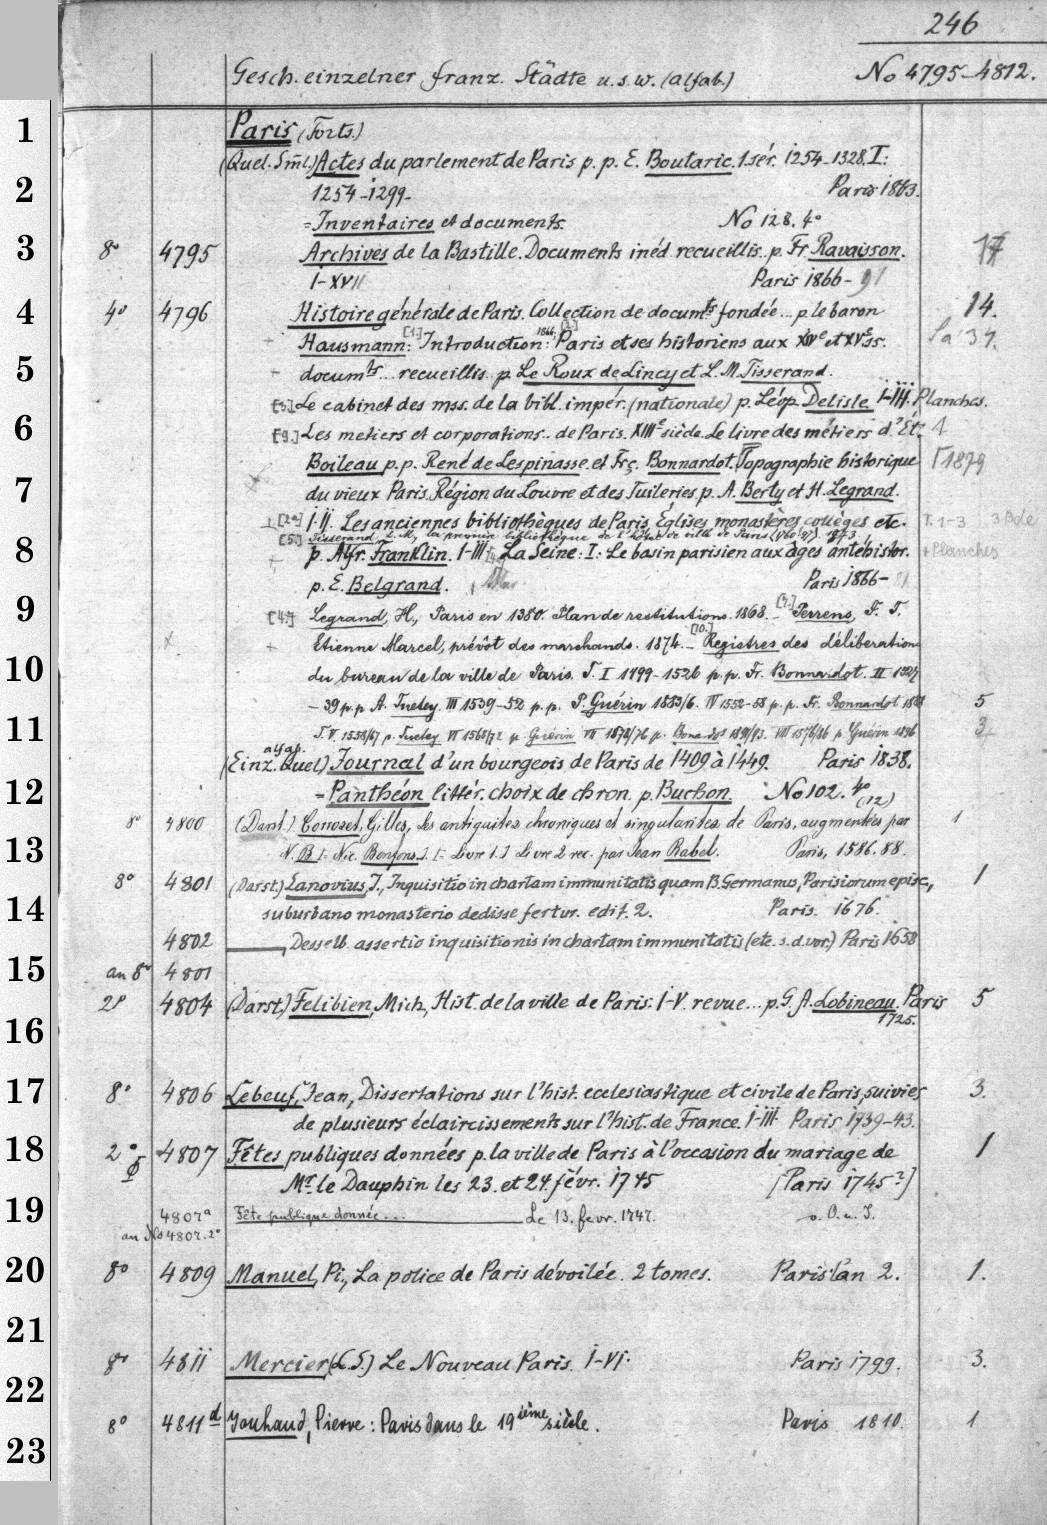 246
Gesch. einzelner franz. Städte u.s.w. (alfab.) No 4795-4812.
1
Paris (Forts.)
(Quel. Sml.) Actes du parlement de Paris p. p. E. Boutaric. 1. sér. 1254-1328. I:
2
1254-1299. Paris 1863.
= Inventaires et documents. No 128. 4°
3
8° 4795 Archives de la Bastille. Documents inéd. recueillis p. Fr. Ravaisson. 17
I-XVII Paris 1866-91
4
4° 4796 Histoire générale de Paris. Collection de documts fondée... p. le baron 14.
Hausmann: [1.] Introduction: 1866. [2.] Paris et ses historiens aux XIVe et XVe ss.
5
documts... recueillis p. Le Roux de Lincy et L. M. Tisserand.
[3.] Le cabinet des mss. de la bibl. impér. (nationale) p. Léop. Delisle I-III. Planches.
6
[9.] Les metiers et corporations.. de Paris. XIIIe siècle. Le livre des métiers d'Et.
Boileau p.p. René de Lespinasse et Frç. Bonnardot. Topographie historique 1879
7
du vieux Paris. Région du Louvre et des Tuileries p. A. Berty et H. Legrand.
I. II. Les anciennes bibliothèques de Paris. Eglises, monastères, collèges etc. T. 1-3
8
[5.] Tisserand, L. M., la première bibliothèque de l'hôtel de ville de Paris 1873.
p. Alfr. Franklin. I-III. La Seine: I: Le basin parisien aux âges antéhistor. + Planches
p. E. Belgrand. Paris 1866-
9
[4.] Legrand, H., Paris en 1380. Plan de restitutions. 1868. - [7.] Perrens, F. T.
Etienne Marcel, prévôt des marchands. 1874. - [10.] Registres des délibérations
10
du bureau de la ville de Paris. T. I 1499-1526 p. p. Fr. Bonnardot. II 1527
-39 p. p. A. Tuetey. III 1539-52 p. p. P. Guérin 1883/6. IV 1552-58 p. p. Fr. Bonnardot 1888 5
11
T. V. 1558/67 p. Tuetey VI 1568/72 p. Guérin VII 1572/76 p. Bonnardot 1891/93. VIII 1576/86 p. Guérin 1896
alfab.
(Einz. Quel.) Journal d'un bourgeois de Paris de 1409 à 1449. Paris 1838.
12
= Panthéon littér. choix de chron. p. Buchon. No 102. 4° (12)
8° 4800 (Darst.) Corrozet, Gilles, Les antiquites chroniques et singularites de Paris, augmentées par 1
13
N. B [: Nic. Bonfons.] I: Livre 1.] Livre 2 rec. par Jean Rabel. Paris, 1586. 88.
8° 4801 (Darst.) Lanovius, J., Inquisitio in chartam immunitatis quam B. Germanus, Parisiorum episc., 1
14
suburbano monasterio dedisse fertur. edit. 2. Paris. 1676.
4802 Desselb. assertio inquisitionis in chartam immunitatis (etc. s. d. vor.) Paris 1658
15
an 8° 4801
2° 4804 (Darst.) Felibien, Mich., Hist. de la ville de Paris. I-V. revue... p. G. A. Lobineau. Paris 5
16
1725.
17
8° 4806 Lebeuf, Jean, Dissertations sur l'hist. ecclesiastique et civile de Paris, suivies 3.
de plusieurs éclaircissements sur l'hist. de France. I-III. Paris 1739-43.
18
2° 4807 Fêtes publiques données p. la ville de Paris à l'occasion du mariage de 1
Mr. le Dauphin les 23. et 24. févr. 1745 [Paris 1745?]
19
4807a Fête publique donnée... Le 13. fevr. 1747. o. O. u. J.
an No 4807. 2°
20
8° 4809 Manuel, Pi., La police de Paris dévoilée. 2 tomes. Paris l'an 2. 1.
21
8° 4811 Mercier (L. S.) Le Nouveau Paris. I-VI. Paris 1799. 3.
22
8° 4811d Jouhaud, Pierre: Paris dans le 19ième siècle. Paris 1810. 1
23